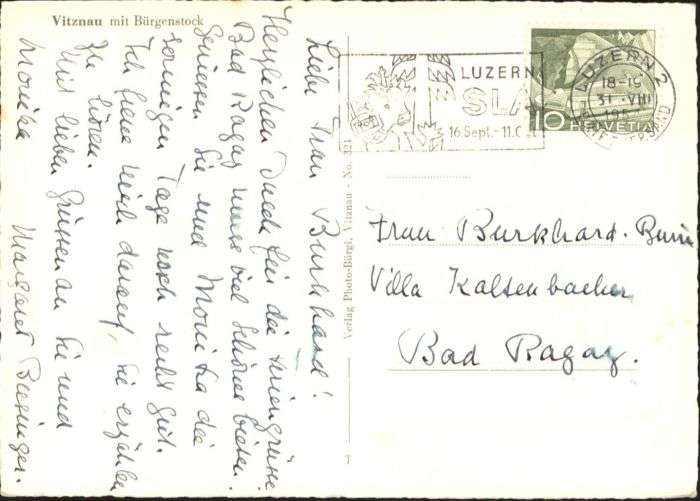 Vitznau mit Bürgenstock
Liebe Frau Burkhard!
Herzlichen Dank für die Feriengrüsse.
Bad Ragaz muss viel Schönes bieten.
Geniessen Sie und Monika die
sonnigen Tage noch recht gut.
Ich freue mich darauf, Sie erzählen
zu hören.
Mit lieben Grüssen an Sie und
Monika Margaret Businger.
Verlag Photo-Bürgi, Vitznau - No. 321
T
LUZERN
SLA
16.Sept.-11.O
LUZERN 2
18-19
31. VIII
195
10 HELVETIA
Frau Burkhard-
Villa Kaltenbacher
Bad Ragaz.